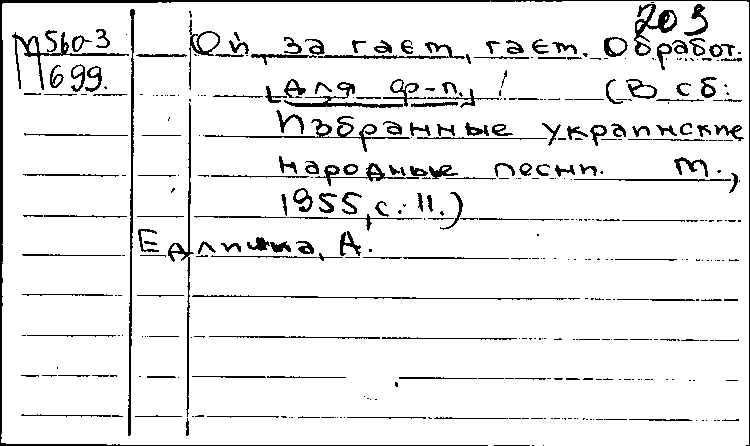 203
М560-3 Ой, за гаєт, гаєт. Обработ.
699. [для ф-п.] / (В сб:
Избранные украинские
народные песни. М.,
1955, с. 11.)
Едличка, А.